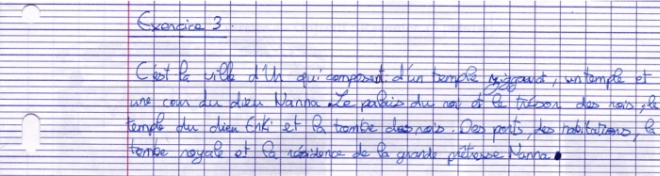 Exercice 3
C'est la ville d'Ur qui composent d'un temple ziggourat, un temple et
une cour du dieu Nanna. Le palais du roi et le trésor des rois, le
temple du dieu Enki et la tombe des rois. Des ports, des habitations, la
tombe royale et la résidence de la grande prêtresse Nanna.